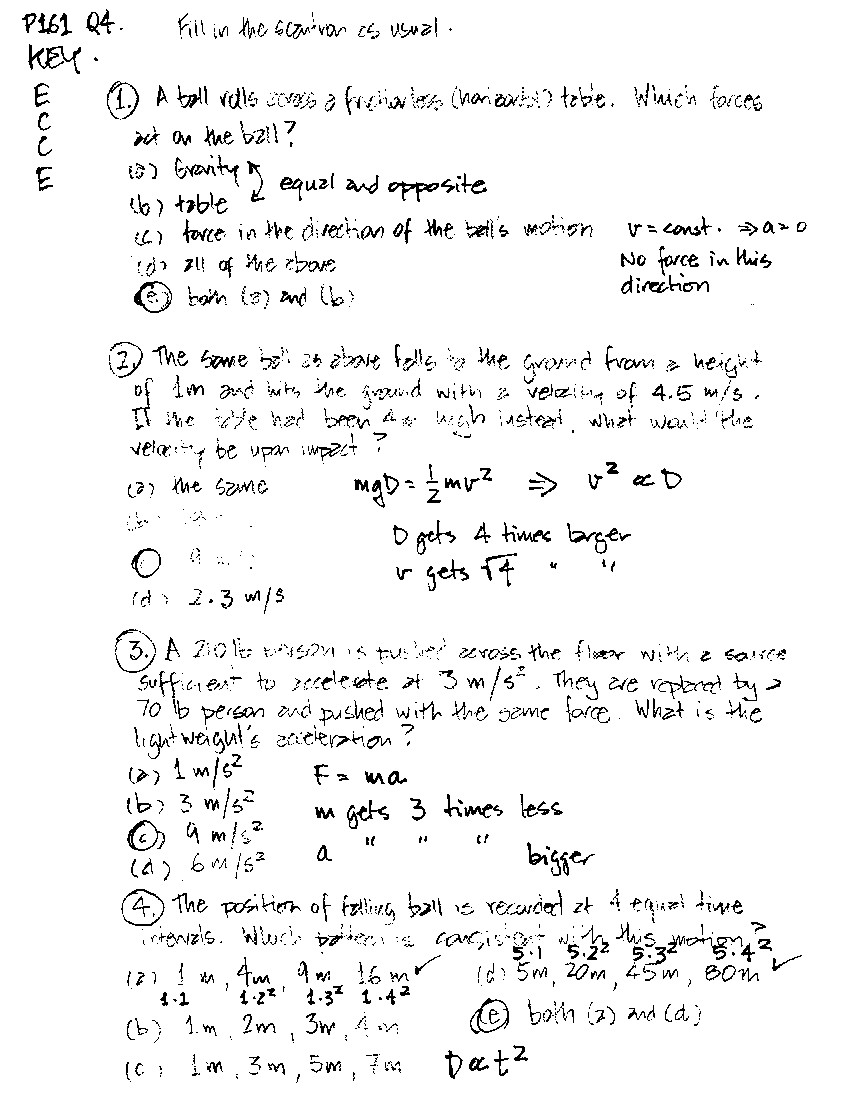 P161 Q4. Fill in the scantron as usual.
KEY.
E
C
C
E
1. A ball rolls across a frictionless (horizontal) table. Which forces
act on the ball?
(a) Gravity
(b) table
equal and opposite
(c) force in the direction of the ball's motion
v = const. ⇒ a = 0
(d) all of the above
No force in this
direction
(e) both (a) and (b)
2. The same ball as above falls to the ground from a height
of 1m and hits the ground with a velocity of 4.5 m/s.
If the table had been 4m high instead, what would the
velocity be upon impact?
(a) the same
mgD = 1/2 mv² ⇒ v² ∝ D
(b)
D gets 4 times larger
9
v gets √4 " "
(d) 2.3 m/s
3. A 210 lb person is pushed across the floor with a
sufficient to accelerate at 3 m/s². They are replaced by a
70 lb person and pushed with the same force. What is the
lightweight's acceleration?
(a) 1 m/s² F = ma
(b) 3 m/s² m gets 3 times less
(c) 9 m/s² a " " " bigger
(d) 6 m/s²
4. The position of falling ball is recorded at 4 equal time
intervals. Which pattern is consistent with this motion?
5·1 5·2² 5·3² 5·4²
(a) 1 m, 4m, 9m, 16 m ✓ (d) 5m, 20m, 45m, 80m ✓
1·1 1·2² 1·3² 1·4²
(b) 1m, 2m, 3m, 4m (e) both (a) and (d)
(c) 1m, 3m, 5m, 7m D∝t²